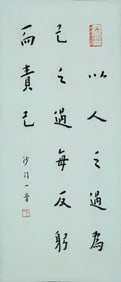 以人之過為
己之過每反躬
而責己
沙門一音